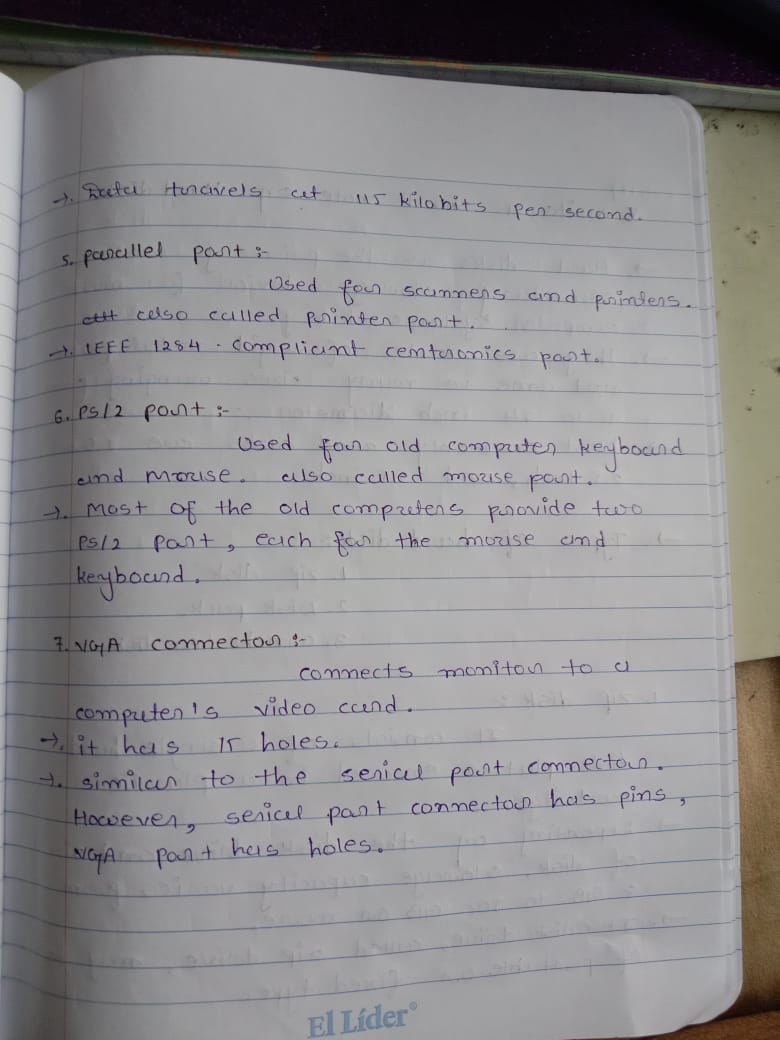 →. Data travels at 115 kilobits per second.
5. parallel port :-
Used for scanners and printers.
also called printer port.
→. IEEE 1284 - compliant centronics port.
6. PS/2 port :-
Used for old computer keyboard
and mouse. also called mouse port.
→. Most of the old computers provide two
PS/2 port, each for the mouse and
keyboard.
7. VGA connector :-
connects monitor to a
computer's video card.
→. it has 15 holes.
→. similar to the serial port connector.
However, serial port connector has pins,
VGA port has holes.
El Líder